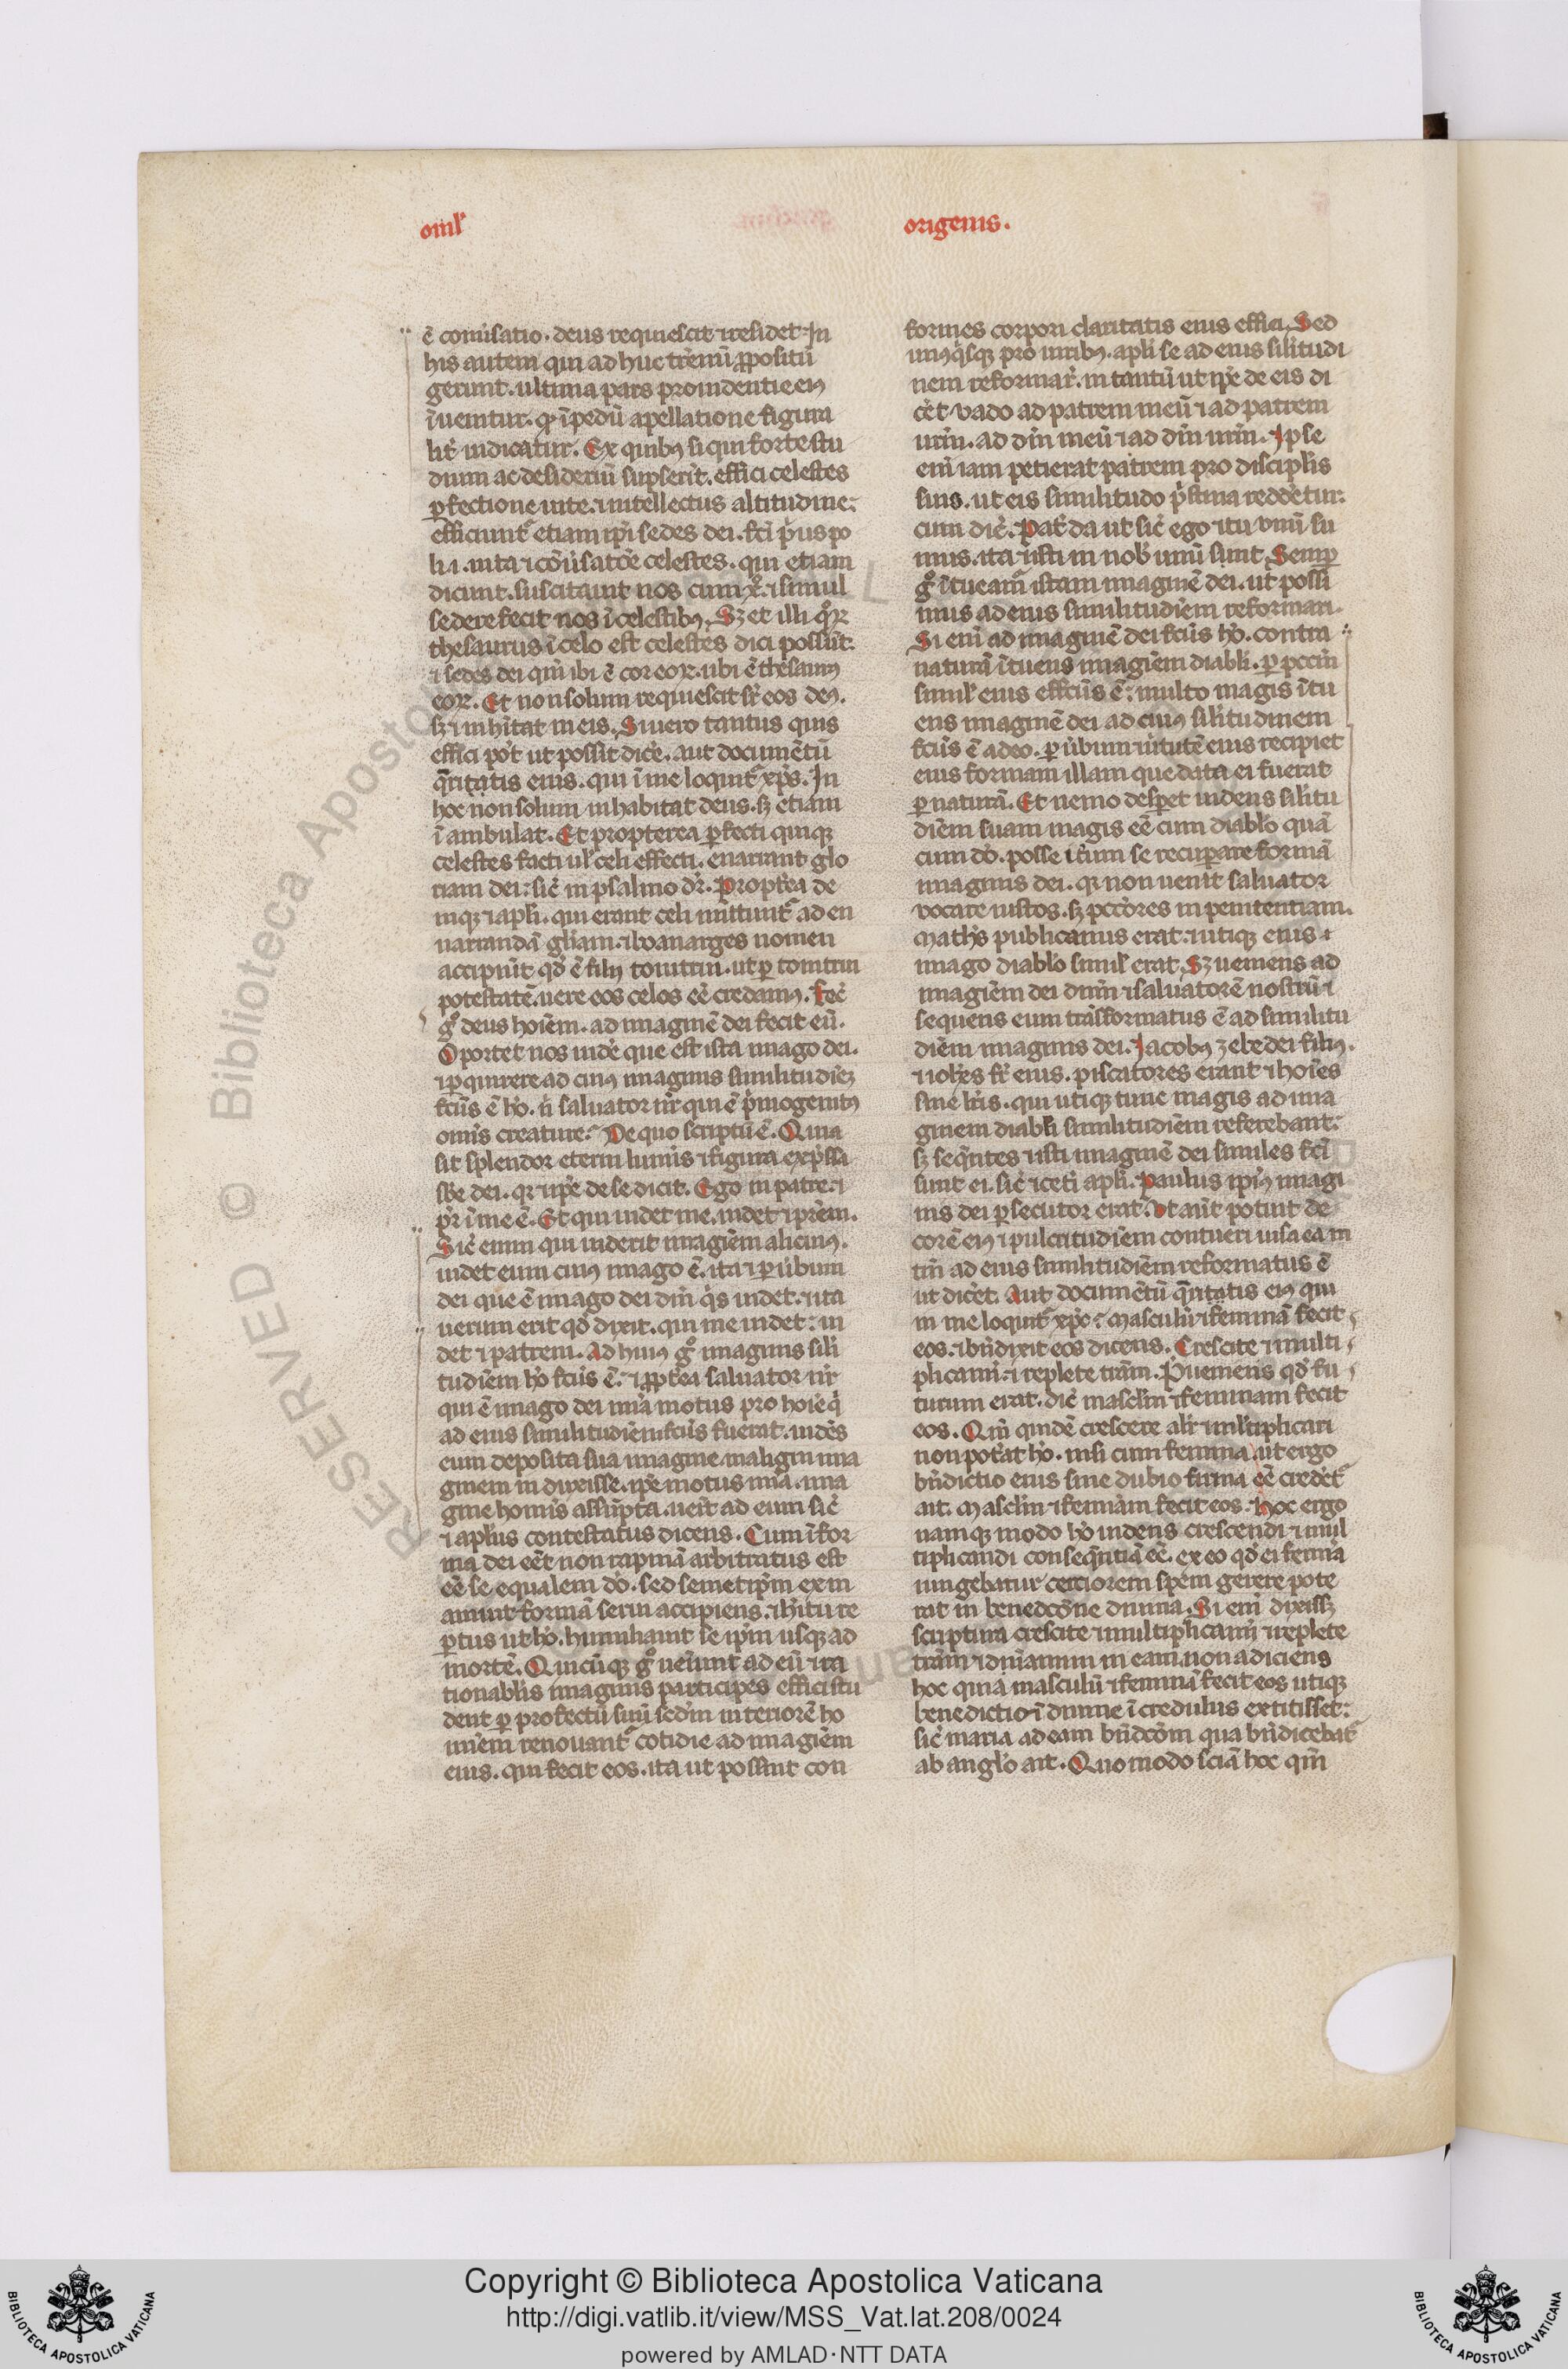 oml'
origenis.
ē conuˀsatio. deus requiescit ⁊ residet. In
his autem qui ad huc t̄renū ꝓpositū
gerunt. ultima pars prouidentie eiꝰ
īuenitur. qͥ ī pedū apellatione figura
lit̄ indicatur. Ex quibꝫ si qui forte stu
dium ac desideriū sūpserīt. effici celestes
ꝑfectione uite. ⁊ intellectus altitudine.
efficiunt᷑ etiam ip̄i sedes dei. fc̄i pͥus po
li .i. uita ⁊ cōuˀsatōe celestes. qui etiam
dicunt. suscitauit nos cum xͦ. ⁊ simul
sedere fecit nos ī celestibꝫ. Sꝫ et illi qͦꝝ
thesaurus ī celo est celestes dici possūt.
⁊ sedes dei qm̄ ibi ē cor eoꝝ. ubi ē thesaurꝰ
eoꝝ. Et non solum requiescit sr̄ eos deꝰ.
sꝫ inhītat in eis. Si uero tantus quis
effici pōt ut possit dicˀe. aut documētū
q̄ritatis eius. qui ī me loquit᷑ xp̄s. In
hoc non solum inhabitat deus. sꝫ etiam
ī ambulat. Et propterea ꝑfecti quiqꝫ
celestes facti ul' celi effecti. enarrant glo
riam dei: sic̄ in psalmo dr̄. Proptˀea de
niqꝫ ⁊ apl'i. qui erant celi mittunt᷑ ad en
narrandā gl'iam. ⁊ boanarges nomen
accipiūt qd̄ ē filij tonitrui. ut ꝑ tonitrui
potestatē. uere eos celos eē credamꝰ. Fec̄
gͦ deus hoīem. ad imaginē dei fecit eū.
Oportet nos uidˀe que est ista imago dei.
⁊ ꝑquirere ad cuiꝰ imaginis similitudīeꝫ
fc̄us ē hͦ. n̄ saluator nr̄ qui ē pͥmogenitꝰ
omīs creature. De quo scriptū ē. Quia
sit splendor eterni luminis ⁊ figura expͥssa
sb̄e dei. qꝛ ⁊ ip̄e de se dicit. Ego in patre. ⁊
pr̄ ī me ē. Et qui uidet me. uidet ⁊ pr̄em.
Sic̄ enim qui uiderit imagīem alicuiꝰ.
uidet eum cuiꝰ imago ē. ita ⁊ ꝑ ūbum
dei que ē imago dei dm̄ qͥs uidet. ⁊ ita
uerum erit qd̄ dixit. qui me uidet: ui
det ⁊ patrem. Ad huiꝰ gͦ imaginis sili
tudīem hͦ fc̄us ē. ⁊ ꝓptˀea saluator nr̄
qui ē imago dei mīa motus pro hoīe qͥ
ad eius similitudīem fc̄us fuerat. uidēs
eum deposita sua imagine maligni ima
ginem in duxisse. ip̄e motus mīa. ima
gine homīs assūpta. uēit ad eum sic̄
⁊ apl'us contestatus dicens. Cum ī for
ma dei eēt non rapinā arbitratus est
eē se equalem dͦ. sed semetip̄m exin
aniuit formā serui accipiens. ⁊ hītu re
ꝑtus ut hͦ. humiliauit se ip̄m usqꝫ ad
mortē. Quicūqꝫ gͦ ueniunt ad eū ⁊ ra
tionabl'is imaginis participes effici stu
dent ꝑ profectū suū sed'm interiorē ho
minem renouant᷑ cotidie ad imagīem
eius. qui fecit eos. ita ut possint con
formes corpori claritatis eius effici. Sed
unusqͥsqꝫ pro uiribꝫ. apl'i se ad eius silitudi
nem reformar̄. in tantū ut ip̄e de eis di
cˀet. vado ad patrem meū ⁊ ad patrem
urm̄. ad dm̄ meū ⁊ ad dm̄ urm̄. Ipse
enī iam petierat patrem pro discipl'is
suis. ut eis similitudo pͥstina reddˀetur.
cum dic̄. Pat̄ da ut sic̄ ego ⁊ tu vnū su
mus. ita ⁊ isti in nob̄ unū sint. Semꝑ
gͦ ītueam᷑ istam imaginē dei. ut possi
mus ad eius similitudīem reformari.
Si enī ad imaginē dei fc̄us hͦ. contra
naturā ītuens imagīem diabl'i. ꝑ pcc̄m
simil' eius effc̄us ē: multo magis ītu
ens imaginē dei ad cuiꝰ silitudinem
fc̄us ē a deo. ꝑ ūbum uˀtutē eius recipiet
eius formam illam que data ei fuerat
ꝑ naturā. Et nemo desꝑet uidens silitu
dīem suam magis eē cum diabl'o quā
cum dͦ. posse itˀum se recuꝑare formā
imaginis dei. qꝛ non uenit saluator
vocare iustos. sꝫ pccˀores in penitentiam.
Mathˀs publicanus erat. ⁊ utiqꝫ eius ⁊
imago diabl'o simil' erat. Sꝫ ueniens ad
imagīem dei dnm̄ ⁊ saluatorē nostrū ⁊
sequens eum trāsformatus ē ad similitu
dīem imaginis dei. Jacobꝰ zebedei filiꝰ.
⁊ ioh̄es fr̄ eius. piscatores erant ⁊ hoīes
sine lr̄is. qui utiqꝫ tunc magis ad ima
ginem diabl'i similitudīem referebant.
sꝫ seq̄ntes ⁊ isti imaginē dei similes fc̄i
sunt ei. sic̄ ⁊ cetˀi apl'i. Paulus ip̄iꝰ imagi
nis dei ꝑsecutor erat. Vt aūt potuit de
corē eiꝰ ⁊ pulcritudīem contueri uisa ea in
tm̄ ad eius similitudīem reformatus ē
ut dicˀet. Aut documētū q̄ritatis eiꝰ qui
in me loquit᷑ xp̄c. Masculū ⁊ feminā fecit
eos. ⁊ bn̄dixit eos dicens. Crescite ⁊ multi
plicamī. ⁊ replete trām. Pͥueniens qd̄ fu
turum erat. dic̄ mascl'm ⁊ feminam fecit
eos. Qm̄ quidē crescere alr̄ ⁊ ml'tiplicari
non potˀat hͦ. nisi cum femina. ut ergo
bn̄dictio eius sine dubio firma eē credˀet᷑
ait. Mascl'm ⁊ feminam fecit eos. Hoc ergo
namqꝫ modo hͦ uidens crescendi ⁊ mul
tiplicandi conseq̄ntiā eē. ex eo qd̄ ei femina
iungebatur certiorem spem gerere pote
rat in benedcōne diuina. Si enī dixissꝫ
scriptura crescite ⁊ multiplicamī ⁊ replete
trām ⁊ dn̄amini in eam. non adiciens
hoc quia masculū ⁊ feminā fecit eos utiqꝫ
benedictioī diuine īcredulus extitisset.
sic̄ maria ad eam bn̄dcōm qua bn̄dicebat᷑
ab angl'o ait. Quomodo sciā hoc qm̄
RESERVED © Biblioteca Apostolica Vaticana
Copyright © Biblioteca Apostolica Vaticana
http://digi.vatlib.it/view/MSS_Vat.lat.208/0024
powered by AMLAD·NTT DATA
BIBLIOTECA APOSTOLICA VATICANA
BIBLIOTECA APOSTOLICA VATICANA